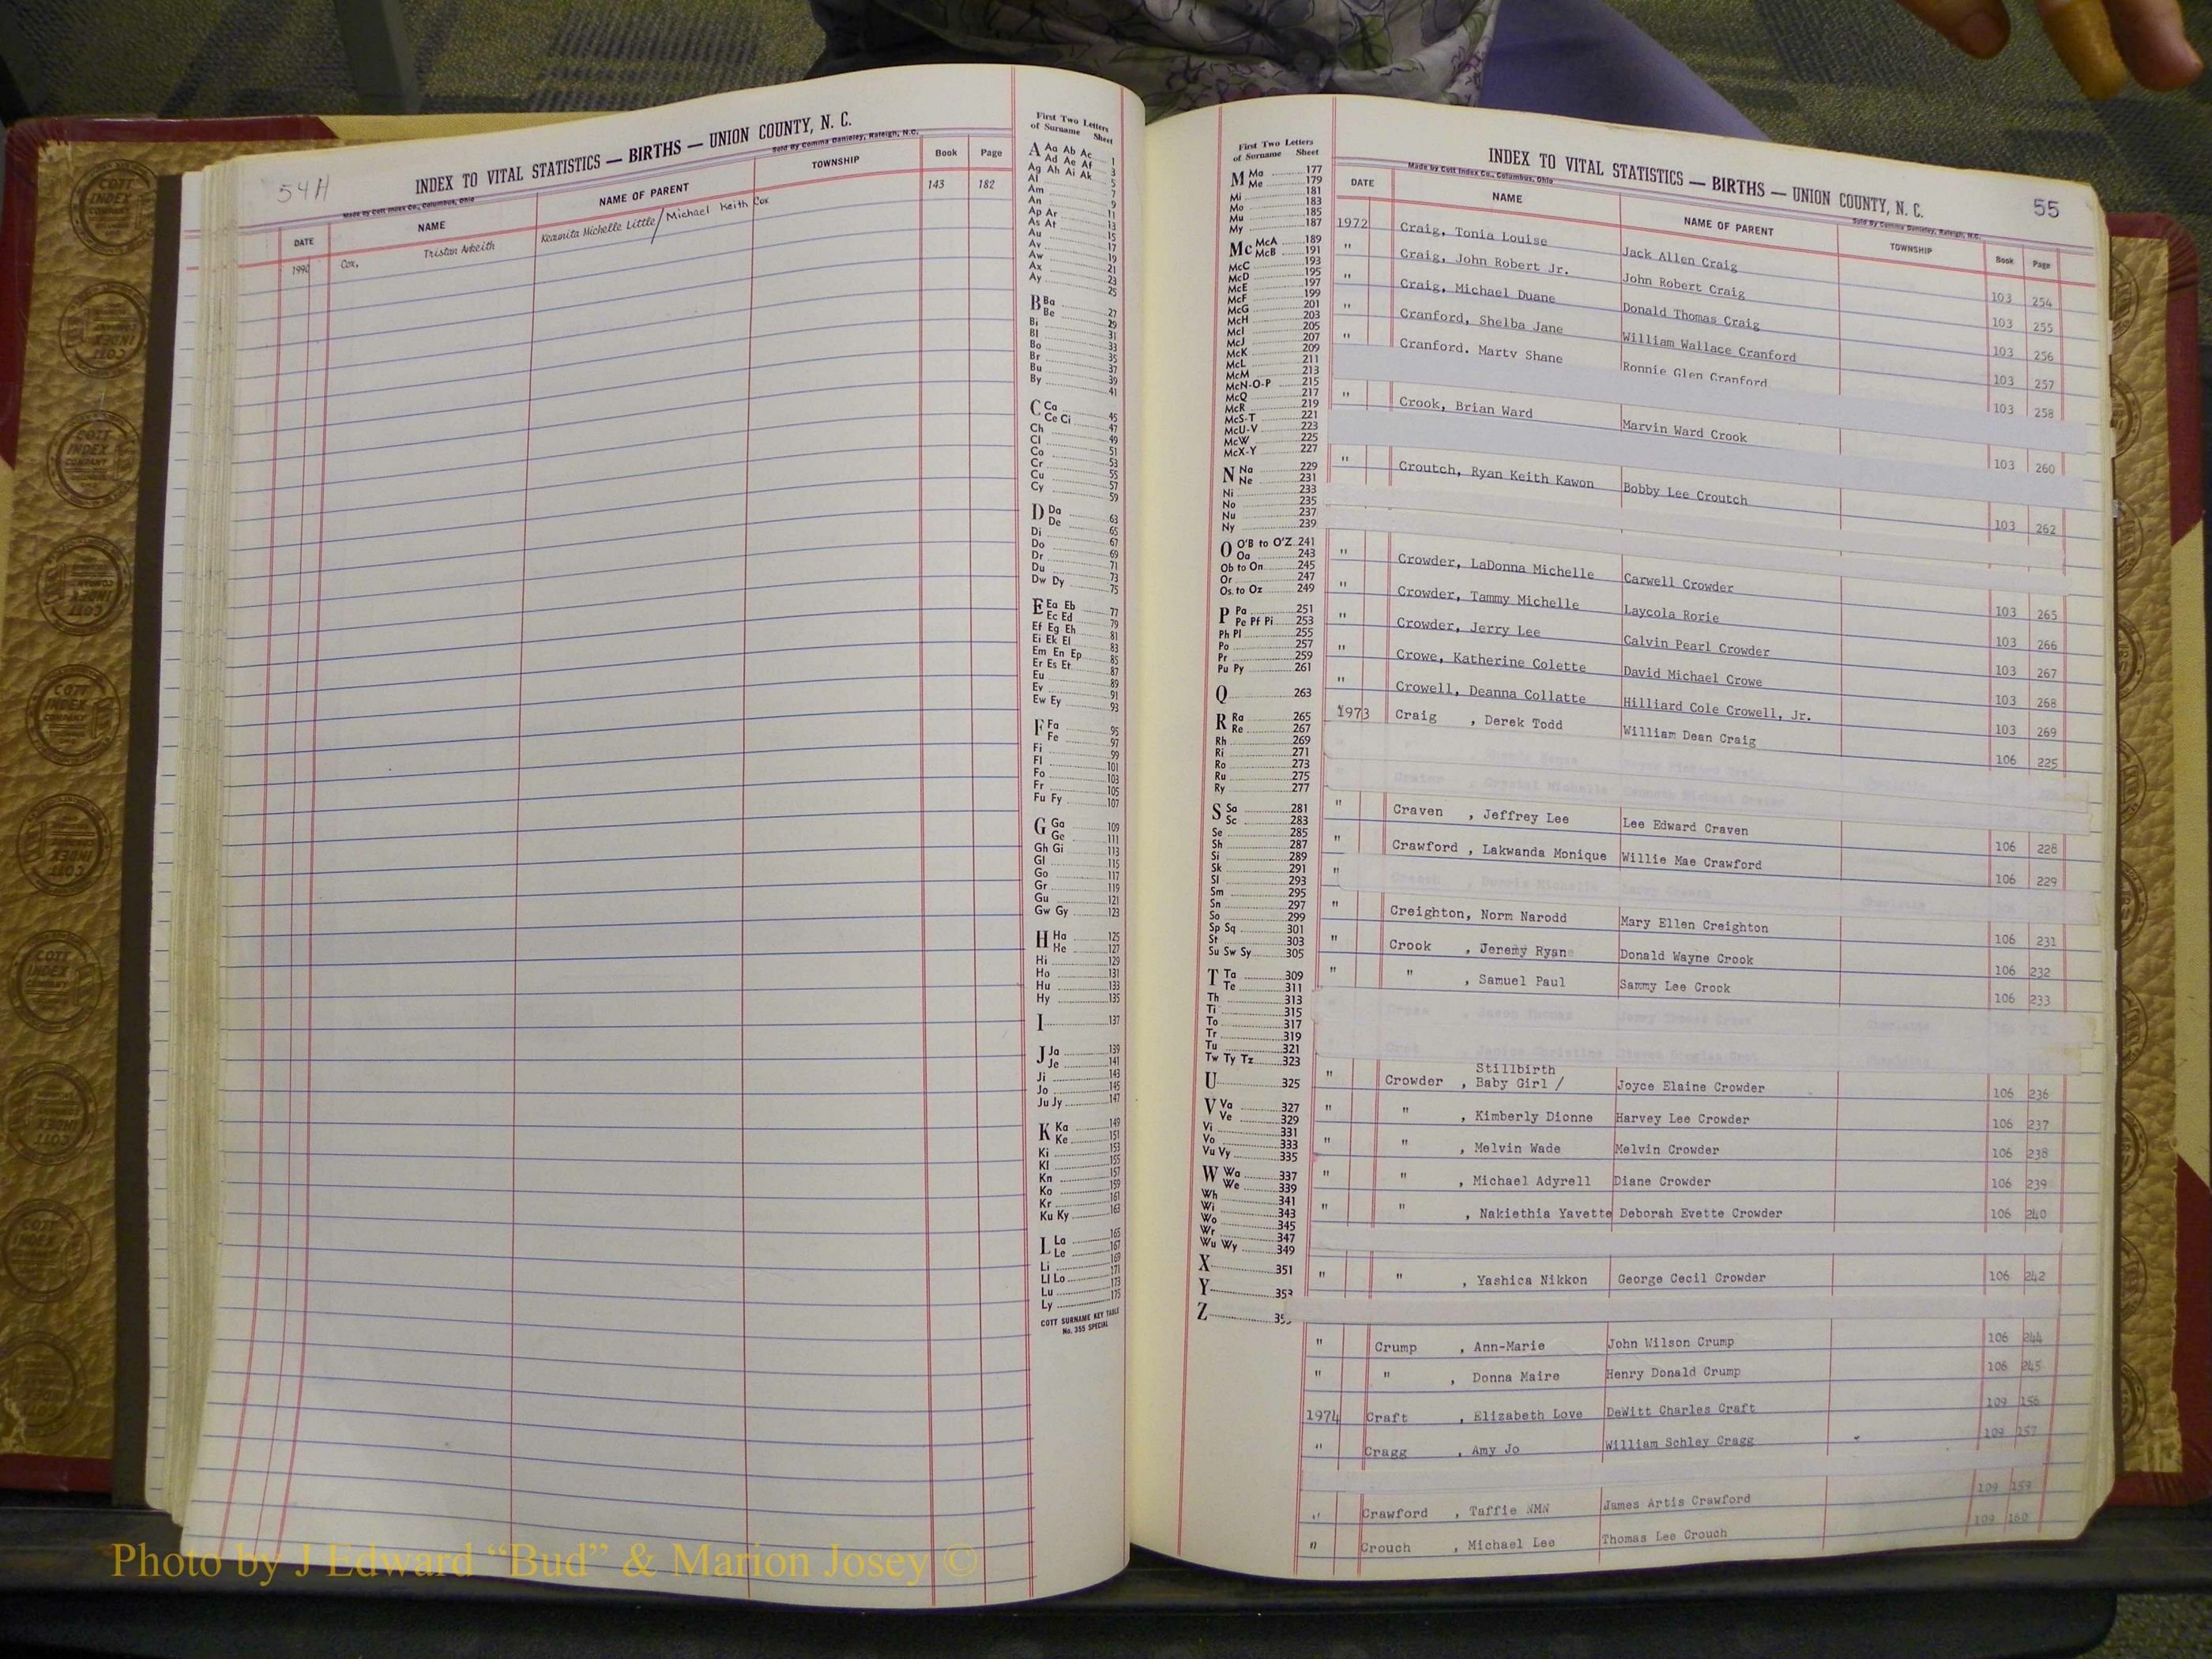 54H
INDEX TO VITAL STATISTICS — BIRTHS — UNION COUNTY, N. C.
Made by Cott Index Co., Columbus, Ohio
Sold By Comma Danieley, Raleigh, N.C.
DATE NAME NAME OF PARENT TOWNSHIP Book Page
1990 Cox, Tristan Michael Keith Cox 143 182
First Two Letters
of Surname Sheet
A Aa Ab Ac 1
Ad Ae Af 3
Ag Ah Ai Ak 5
Al 7
Am 9
An 11
Ap Ar 13
As At 15
Au 17
Av 19
Aw 21
Ax 23
Ay 25
B Ba 27
Be 29
Bi 31
Bl 33
Bo 35
Br 37
Bu 39
By 41
C Ca 45
Ce Ci 47
Ch 49
Cl 51
Co 53
Cr 55
Cu 57
Cy 59
D Da 63
De 65
Di 67
Do 69
Dr 71
Du 73
Dw Dy 75
E Ea Eb 77
Ec Ed 79
Ef Eg Eh 81
Ei Ek El 83
Em En Ep 85
Er Es Et 87
Eu 89
Ev 91
Ew Ey 93
F Fa 95
Fe 97
Fi 99
Fl 101
Fo 103
Fr 105
Fu Fy 107
G Ga 109
Ge 111
Gh Gi 113
Gl 115
Go 117
Gr 119
Gu 121
Gw Gy 123
H Ha 125
He 127
Hi 129
Ho 131
Hu 133
Hy 135
I 137
J Ja 139
Je 141
Ji 143
Jo 145
Ju Jy 147
K Ka 149
Ke 151
Ki 153
Kl 155
Kn 157
Ko 159
Kr 161
Ku Ky 163
L La 165
Le 167
Li 169
Ll Lo 171
Lu 173
Ly 175
COTT SURNAME KEY TABLE
No. 355 SPECIAL
First Two Letters
of Surname Sheet
M Ma 177
Me 179
Mi 181
Mo 183
Mu 185
My 187
Mc McA 189
McB 191
McC 193
McD 195
McE 197
McF 199
McG 201
McH 203
McI 205
McJ 207
McK 209
McL 211
McM 213
McN-O-P 215
McQ 217
McR 219
McS-T 221
McU-V 223
McW 225
McX-Y 227
N Na 229
Ne 231
Ni 233
No 235
Nu 237
Ny 239
O O'B to O'Z 241
Oa 243
Ob to On 245
Or 247
Os to Oz 249
P Pa 251
Pe Pf Pi 253
Ph Pl 255
Po 257
Pr 259
Pu Py 261
Q 263
R Ra 265
Re 267
Rh 269
Ri 271
Ro 273
Ru 275
Ry 277
S Sa 281
Sc 283
Se 285
Sh 287
Si 289
Sk 291
Sl 293
Sm 295
Sn 297
So 299
Sp Sq 301
St 303
Su Sw Sy 305
T Ta 309
Te 311
Th 313
Ti 315
To 317
Tr 319
Tu 321
Tw Ty Tz 323
U 325
V Va 327
Ve 329
Vi 331
Vo 333
Vu Vy 335
W Wa 337
We 339
Wh 341
Wi 343
Wo 345
Wr 347
Wu Wy 349
X 351
Y 353
Z
55
INDEX TO VITAL STATISTICS — BIRTHS — UNION COUNTY, N. C.
Made by Cott Index Co., Columbus, Ohio
Sold By Comma Danieley, Raleigh, N.C.
DATE NAME NAME OF PARENT TOWNSHIP Book Page
1972 Craig, Tonia Louise Jack Allen Craig 103 254
" Craig, John Robert Jr. John Robert Craig 103 255
" Craig, Michael Duane Donald Thomas Craig 103 256
" Cranford, Shelba Jane William Wallace Cranford 103 257
" Cranford, Marty Shane Ronnie Glen Cranford 103 258
" Crook, Brian Ward Marvin Ward Crook 103 260
" Croutch, Ryan Keith Kawon Bobby Lee Croutch 103 262
" Crowder, LaDonna Michelle Carwell Crowder 103 265
" Crowder, Tammy Michelle Laycola Rorie 103 266
" Crowder, Jerry Lee Calvin Pearl Crowder 103 267
" Crowe, Katherine Colette David Michael Crowe 103 268
" Crowell, Deanna Collatte Hilliard Cole Crowell, Jr. 103 269
1973 Craig , Derek Todd William Dean Craig 106 225
" Craven , Jeffrey Lee Lee Edward Craven 106 228
" Crawford , Lakwanda Monique Willie Mae Crawford 106 229
"
" Creighton, Norm Narodd Mary Ellen Creighton 106 231
" Crook , Jeremy Ryan Donald Wayne Crook 106 232
" " , Samuel Paul Sammy Lee Crook 106 233
Stillbirth
" Crowder , Baby Girl / Joyce Elaine Crowder 106 236
" " , Kimberly Dionne Harvey Lee Crowder 106 237
" " , Melvin Wade Melvin Crowder 106 238
" " , Michael Adyrell Diane Crowder 106 239
" " , Nakiethia Yavette Deborah Evette Crowder 106 240
" " , Yashica Nikkon George Cecil Crowder 106 242
" Crump , Ann-Marie John Wilson Crump 106 244
" " , Donna Maire Henry Donald Crump 106 245
1974 Craft , Elizabeth Love DeWitt Charles Craft 109 156
" Cragg , Amy Jo William Schley Cragg 109 157
" Crawford , Taffie NMN James Artis Crawford 109 159
" Crouch , Michael Lee Thomas Lee Crouch 109 160
Photo by J Edward “Bud” & Marion Josey ©